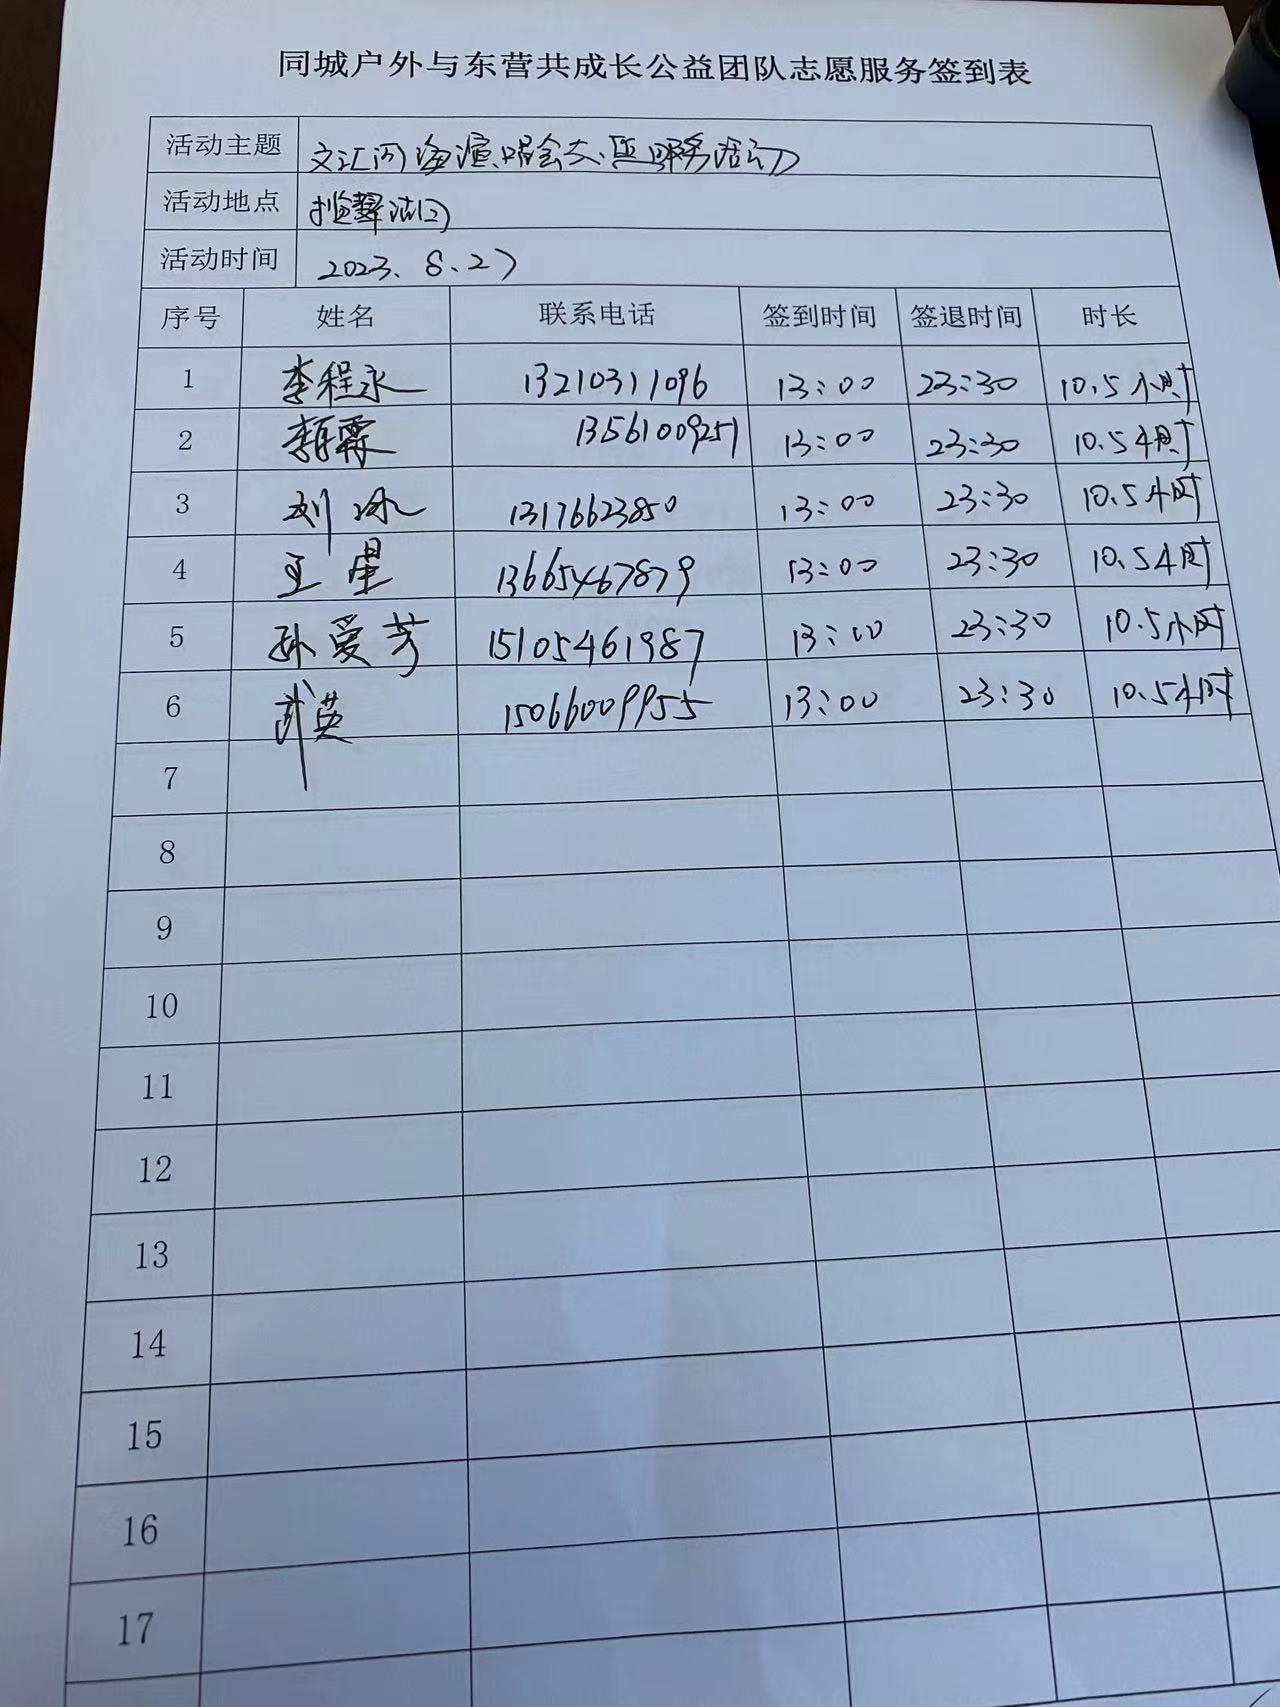 同城户外与东营共成长公益团队志愿服务签到表
活动主题 文汇河海演唱会志愿服务活动
活动地点 揽翠湖
活动时间 2023.8.27
序号 姓名 联系电话 签到时间 签退时间 时长
1 李程永 13210311096 13:00 23:30 10.5小时
2 霖 13561009251 13:00 23:30 10.5小时
3 刘冰 13176623850 13:00 23:30 10.5小时
4 王星 13665467879 13:00 23:30 10.5小时
5 孙爱芳 15105461987 13:00 23:30 10.5小时
6 武英 15066009955 13:00 23:30 10.5小时
7
8
9
10
11
12
13
14
15
16
17